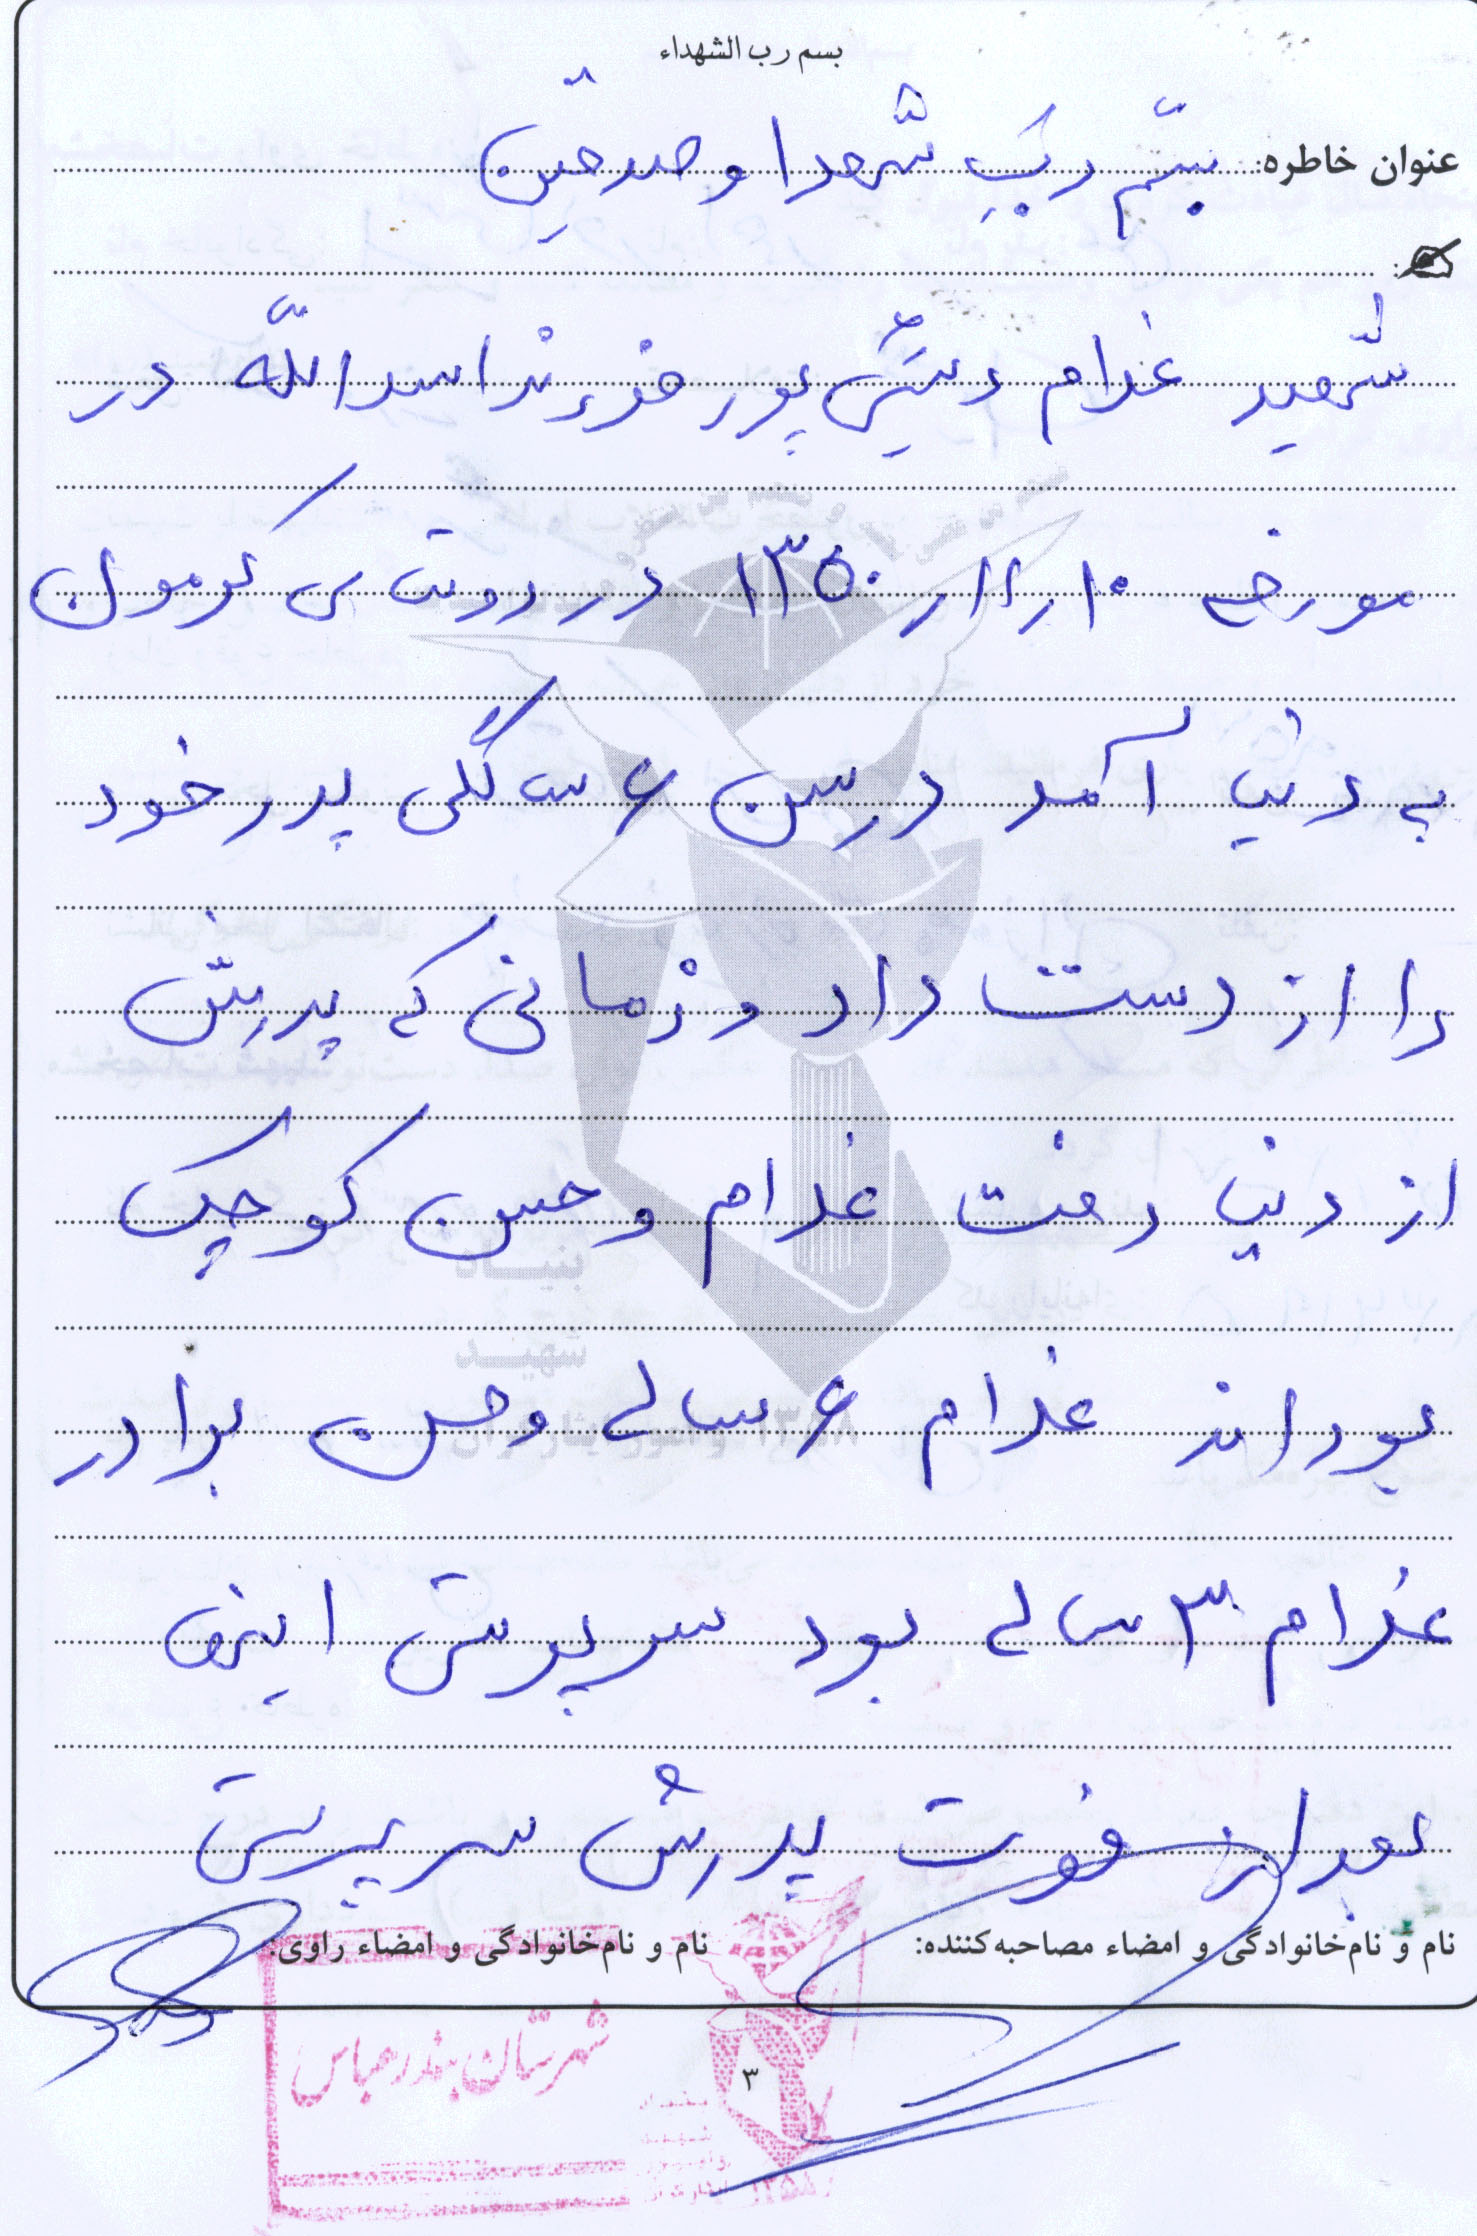 بسم رب الشهداء
عنوان خاطره: بسم رب شهدا و صدقین
شهید غلام درویش پور فرزند اسدالله در
مورخه ۱۳۵۰/۱۱/۱۰ در روستای کرمون
به دنیا آمد در سن ۶ سالگی پدر خود
را از دست داد و زمانی که پدرش
از دنیا رفت غلام و حسن کوچک
بوداند غلام ۶ ساله و حسن برادر
غلام ۳ ساله بود سرپرستی اینها
بعد از فوت پدرش سرپرستی
نام و نام‌خانوادگی و امضاء مصاحبه‌کننده: نام و نام‌خانوادگی و امضاء راوی:
شهرستان بندرعباس
۳
بنیاد
شهید